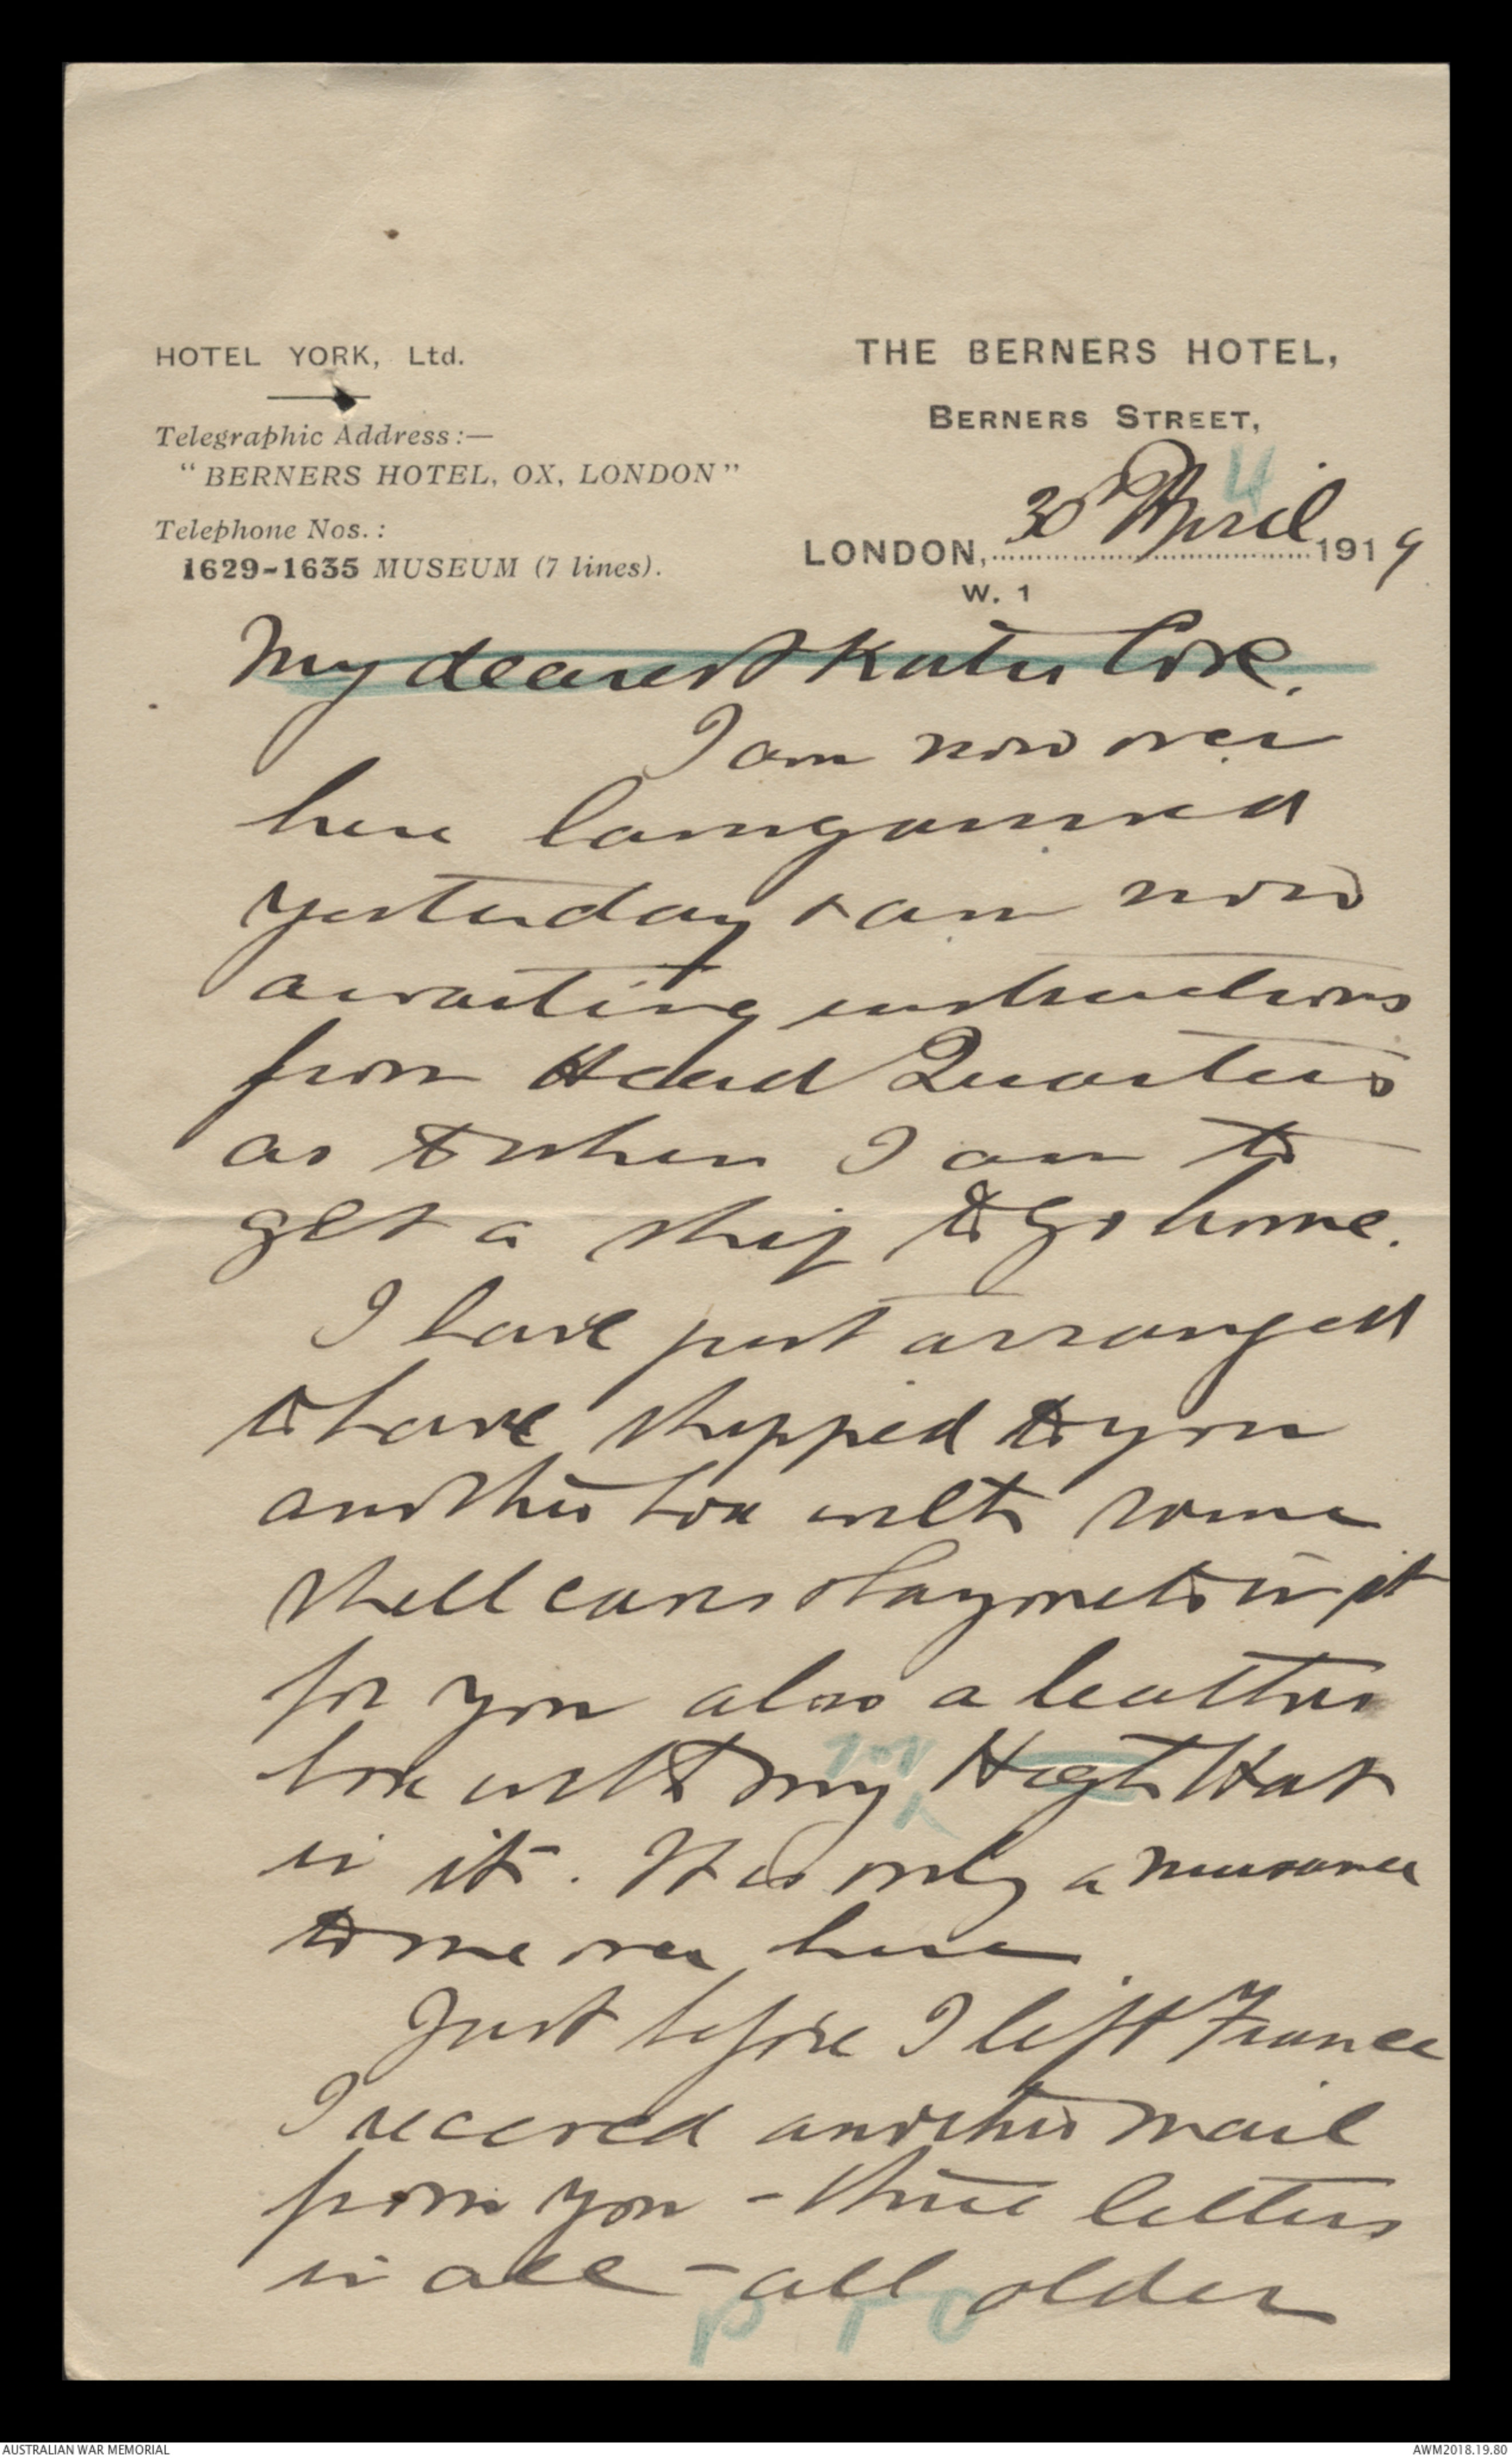 HOTEL YORK, Ltd.
Telegraphic Address:—
"BERNERS HOTEL, OX, LONDON"
Telephone Nos.:
1629-1635 MUSEUM (7 lines).
THE BERNERS HOTEL,
BERNERS STREET,
4
LONDON, 30th April 1919
W. 1
My dearest Katie
I am now over
here
yesterday & am now
awaiting instructions
from Head Quarters
as to when I am to
get a ship to go home.
I have just arranged
to have shipped to you
another box with some
shell cases & bayonets in it
for you also a leather
box with my Hight Hat
in it. It is only a nuisance
to me over here
Just before I left France
I receeved another mail
from you - three letters
in all - all older
P T O
AUSTRALIAN WAR MEMORIAL
AWM2018.19.80